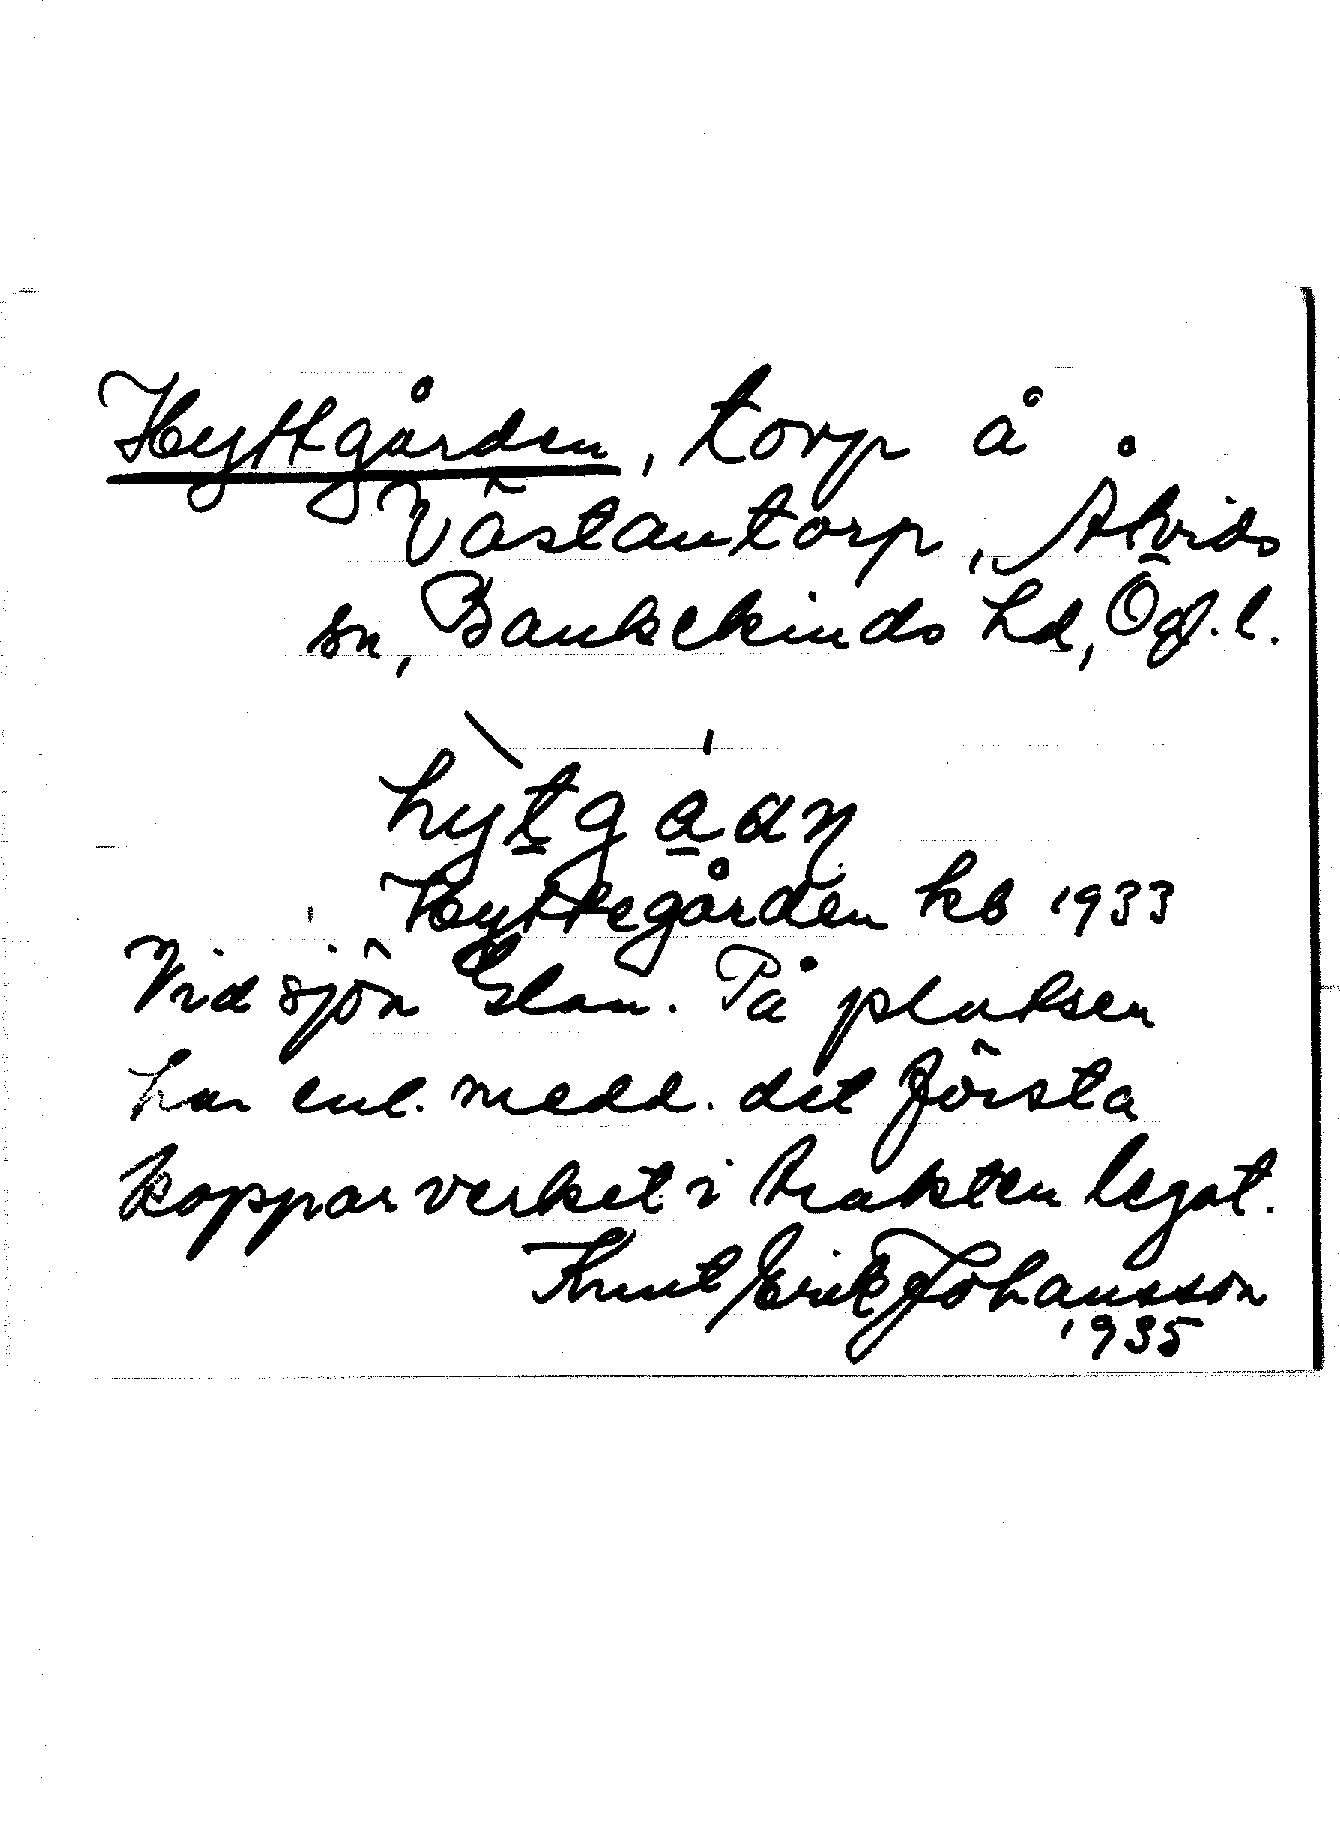 Hyttgården, torp å
Västantorp, Åtvids
sn, Bankekinds hd, Ög. l.
hytgaaṇ
Hyttegården kb 1933
Vid sjön Glan. På platsen
har enl. medd. det första
kopparverket i trakten legat.
Knut Erik Johansson
1935